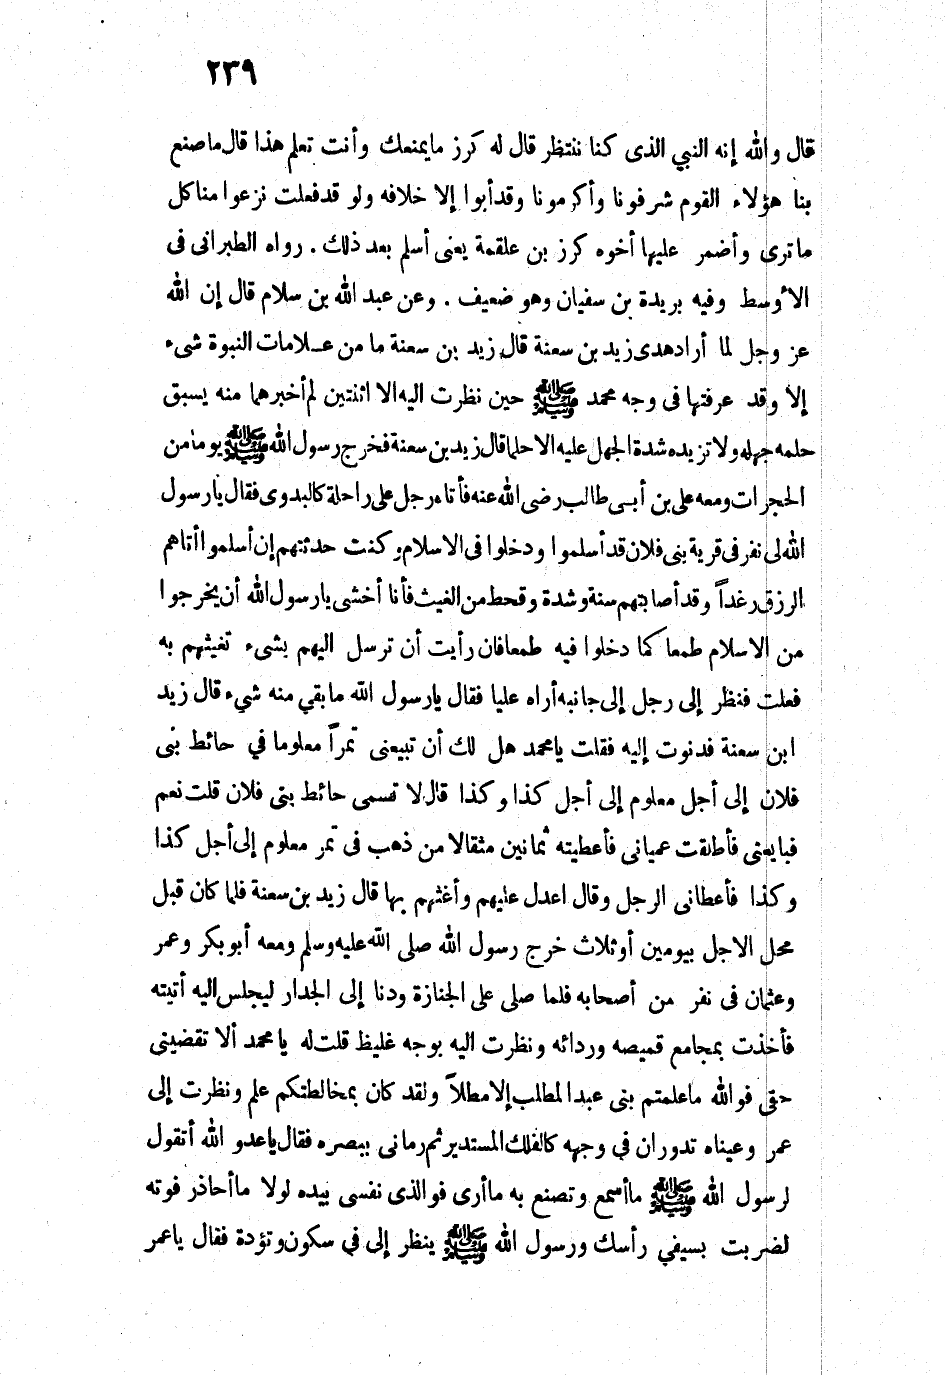 ٢٣٩
قال والله إنه النبي الذى كنا ننتظر قال له كرز مايمنعك وأنت تعلم هذا قال ماصنع
بنا هؤلاء القوم شرفونا وأكرمونا وقد أبوا إلا خلافه ولو قد فعلت نزعوا منا كل
ماترى وأضمر عليها أخوه كرز بن علقمة يعنى أسلم بعد ذلك . رواه الطبرانى فى
الاوسط وفيه بريدة بن سفيان وهو ضعيف . وعن عبد الله بن سلام قال إن الله
عز وجل لما أراد هدى زيد بن سعنة قال زيد بن سعنة ما من عـلامات النبوة شىء
إلا وقد عرفتها فى وجه محمد ﷺ حين نظرت اليه الا اثنتين لم أخبرهما منه يسبق
حلمه جهله ولا تزيده شدة الجهل عليه الا حلما قال زيد بن سعنة فخرج رسول الله ﷺ يوما من
الحجرات ومعه على بن أبى طالب رضى الله عنه فأتاه رجل على راحلة كالبدوى فقال يارسول
الله لى نفر فى قرية بنى فلان قد أسلموا ودخلوا فى الاسلام وكنت حدثتهم إن أسلموا أتاهم
الرزق رغداً وقد أصابتهم سنة وشدة وقحط من الغيث فأنا أخشى يارسول الله أن يخرجوا
من الاسلام طمعا كما دخلوا فيه طمعا فان رأيت أن ترسل اليهم بشىء تغيثهم به
فعلت فنظر إلى رجل إلى جانبه أراه عليا فقال يارسول الله مابقي منه شيء قال زيد
ابن سعنة فدنوت إليه فقلت يامحمد هل لك أن تبيعنى تمراً معلوما في حائط بنى
فلان إلى أجل معلوم إلى أجل كذا وكذا قال لا تسمى حائط بنى فلان قلت نعم
فبايعنى فأطلقت عميانى فأعطيته ثمانين مثقالا من ذهب فى تمر معلوم إلى أجل كذا
وكذا فأعطانى الرجل وقال اعدل عليهم وأغثهم بها قال زيد بن سعنة فلما كان قبل
محل الاجل بيومين أو ثلاث خرج رسول الله صلى الله عليه وسلم ومعه أبو بكر وعمر
وعثمان فى نفر من أصحابه فلما صلى على الجنازة ودنا إلى الجدار ليجلس اليه أتيته
فأخذت بمجامع قميصه وردائه ونظرت اليه بوجه غليظ قلت له يامحمد ألا تقضينى
حقى فو الله ماعلمتم بنى عبد المطلب إلا مطلاً ولقد كان بمخالطتكم علم ونظرت إلى
عمر وعيناه تدوران في وجهه كالفلك المستدير ثم رمانى ببصره فقال ياعدو الله أتقول
لرسول الله ﷺ ماأسمع وتصنع به ماأرى فو الذى نفسى بيده لولا ماأحاذر فوته
لضربت بسيفي رأسك ورسول الله ﷺ ينظر إلى في سكون وتؤدة فقال ياعمر